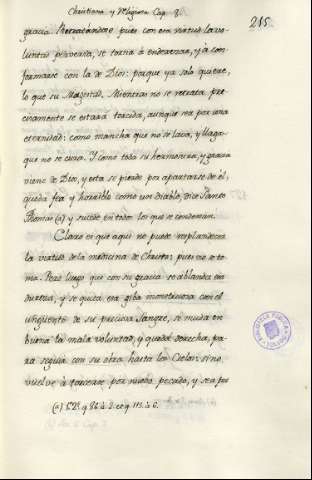 Christiana y Religiosa Cap. 8.
215.
gracia. Retratándose pues con esa virtud la vo-
luntad perversa, se torna à enderezar, y à con-
formarse con la de Dios: porque ya solo quiere,
lo que su Magestad. Mientras no se retrata, pre-
cisamente se estará torcida, aunque sea por una
eternidad: como mancha que no se lava, y llaga
que no se cura. Y como toda su hermosura, y gracia
viene de Dios, y esta se pierde por apartarse de él,
queda fea y horrible como un diablo, dice Santo
Thomas (a) y sucede en todos los que se condenan.
Claro es que aquí no puede resplandecer
la virtud de la medicina de Christo, pues no se to-
ma. Pero luego que con su gracia se ablanda esa
dureza, y se quita esa giba monstruosa con el
ungüento de su preciosa Sangre, se muda en
buena la mala voluntad, y queda derecha, pa-
ra seguir con su obra hasta los Cielos: si no
vuelve à torcerse por nuevo pecado, y sea fea
(a) 1.2. q. 86. à. 2. et q. 113. à. 6.